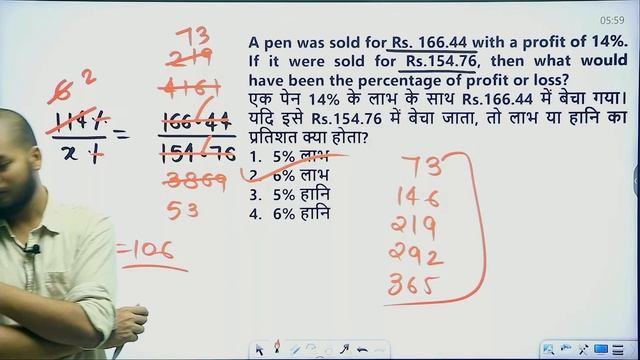 05:59
A pen was sold for Rs. 166.44 with a profit of 14%.
If it were sold for Rs.154.76, then what would
have been the percentage of profit or loss?
एक पेन 14% के लाभ के साथ Rs.166.44 में बेचा गया।
यदि इसे Rs.154.76 में बेचा जाता, तो लाभ या हानि का
प्रतिशत क्या होता?
1. 5% लाभ
2. 6% लाभ
3. 5% हानि
4. 6% हानि
73
219
4161
6 2
114% = 166.44
x % 154.76
3869
53
=106
73
146
219
292
365